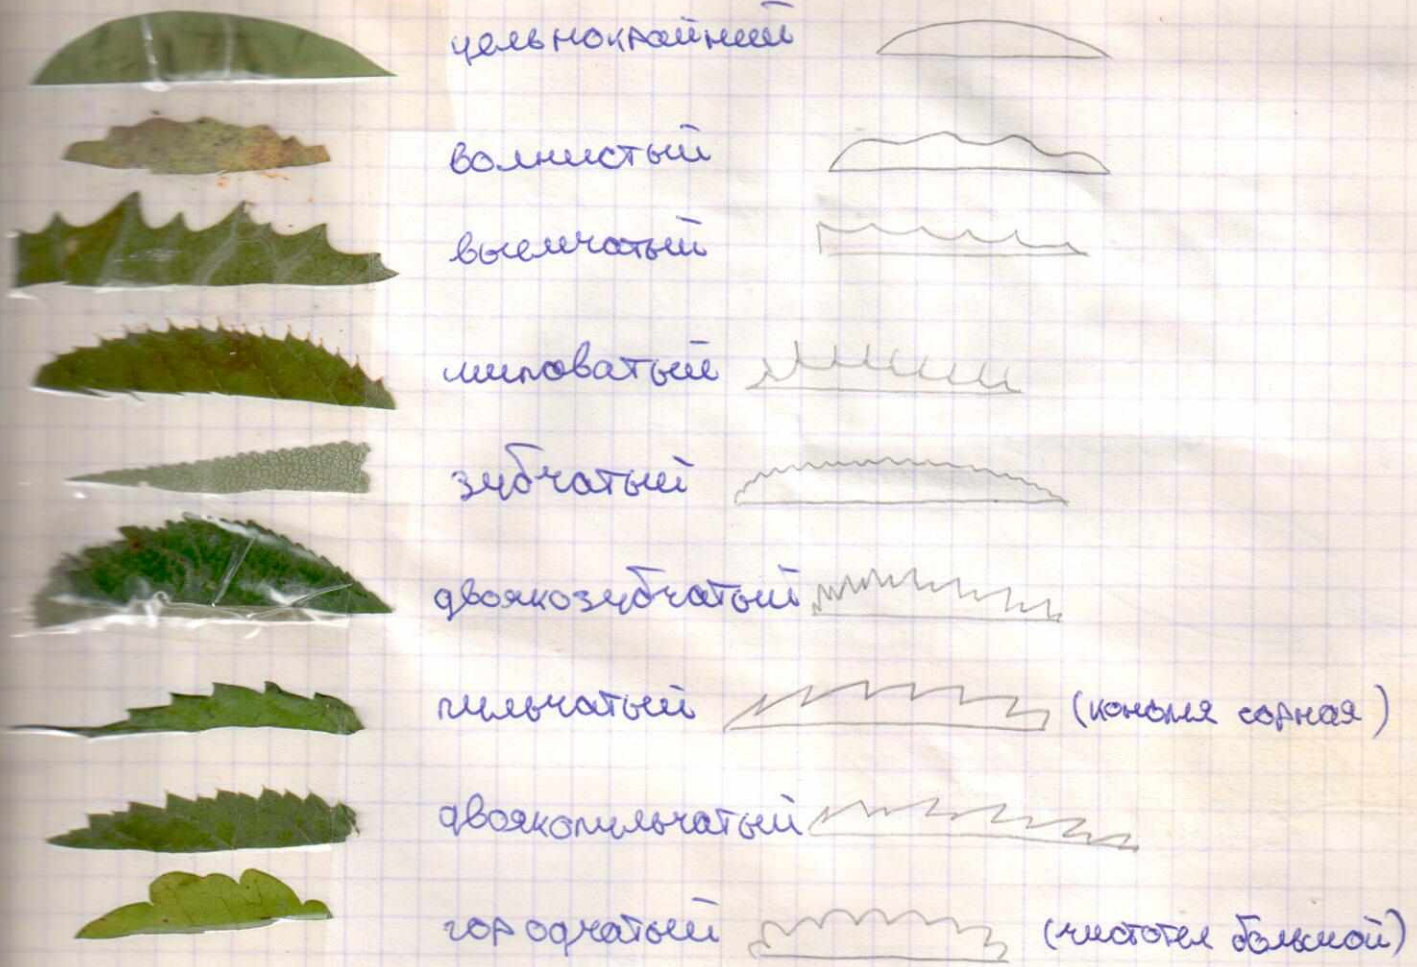 цельнокрайний
волнистый
выемчатый
шиповатый
зубчатый
двоякозубчатый
пильчатый (конопля сорная)
двоякопильчатый
городчатый (чистотел большой)